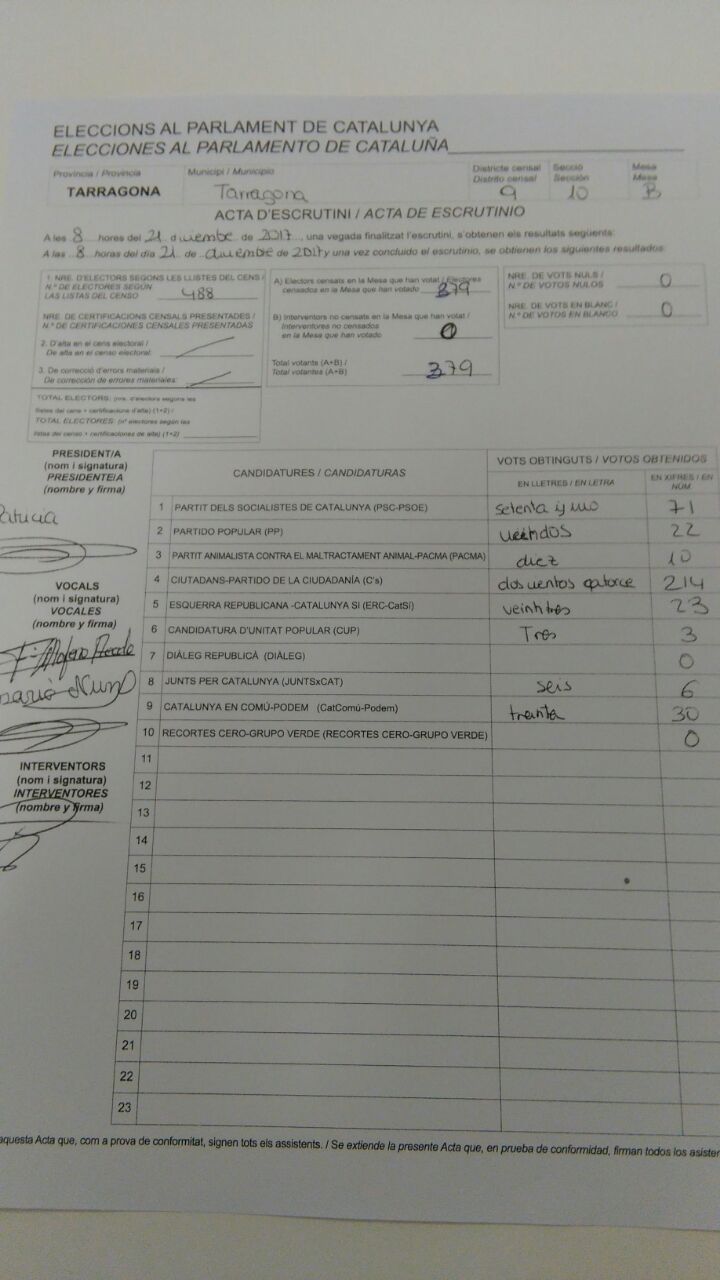 ELECCIONS AL PARLAMENT DE CATALUNYA
ELECCIONES AL PARLAMENTO DE CATALUÑA
Província / Provincia
TARRAGONA
Municipi / Municipio
Tarragona
Districte censal
Distrito censal
9
Secció
Sección
10
Mesa
Mesa
B
ACTA D'ESCRUTINI / ACTA DE ESCRUTINIO
A les 8 hores del 21 diciembre de 2017, una vegada finalitzat l'escrutini, s'obtenen els resultats següents:
A las 8 horas del día 21 de diciembre de 2017 y una vez concluido el escrutinio, se obtienen los siguientes resultados:
1. NRE. D'ELECTORS SEGONS LES LLISTES DEL CENS /
N.º DE ELECTORES SEGÚN
LAS LISTAS DEL CENSO 488
NRE. DE CERTIFICACIONS CENSALS PRESENTADES /
N.º DE CERTIFICACIONES CENSALES PRESENTADAS
2. D'alta en el cens electoral /
De alta en el censo electoral
3. De correcció d'errors materials /
De corrección de errores materiales:
TOTAL ELECTORS: (nre. d'electors segons les
llistes del cens + certificacions d'alta) (1+2) /
TOTAL ELECTORES: (nº electores según las
listas del censo + certificaciones de alta) (1+2)
A) Electors censats en la Mesa que han votat / Electores
censados en la Mesa que han votado 379
B) Interventors no censats en la Mesa que han votat /
Interventores no censados
en la Mesa que han votado 0
Total votants (A+B) /
Total votantes (A+B) 379
NRE. DE VOTS NULS /
N.º DE VOTOS NULOS 0
NRE. DE VOTS EN BLANC /
N.º DE VOTOS EN BLANCO 0
PRESIDENT/A
(nom i signatura)
PRESIDENTE/A
(nombre y firma)
VOCALS
(nom i signatura)
VOCALES
(nombre y firma)
INTERVENTORS
(nom i signatura)
INTERVENTORES
(nombre y firma)
CANDIDATURES / CANDIDATURAS
VOTS OBTINGUTS / VOTOS OBTENIDOS
EN LLETRES / EN LETRA
EN XIFRES / EN NÚM.
1 PARTIT DELS SOCIALISTES DE CATALUNYA (PSC-PSOE) setenta y uno 71
2 PARTIDO POPULAR (PP) veintidos 22
3 PARTIT ANIMALISTA CONTRA EL MALTRACTAMENT ANIMAL-PACMA (PACMA) diez 10
4 CIUTADANS-PARTIDO DE LA CIUDADANÍA (C's) doscientos catorce 214
5 ESQUERRA REPUBLICANA -CATALUNYA SÍ (ERC-CatSí) veintitres 23
6 CANDIDATURA D'UNITAT POPULAR (CUP) Tres 3
7 DIÀLEG REPUBLICÀ (DIÀLEG) 0
8 JUNTS PER CATALUNYA (JUNTSxCAT) seis 6
9 CATALUNYA EN COMÚ-PODEM (CatComú-Podem) treinta 30
10 RECORTES CERO-GRUPO VERDE (RECORTES CERO-GRUPO VERDE) 0
11
12
13
14
15
16
17
18
19
20
21
22
23
aquesta Acta que, com a prova de conformitat, signen tots els assistents. / Se extiende la presente Acta que, en prueba de conformidad, firman todos los